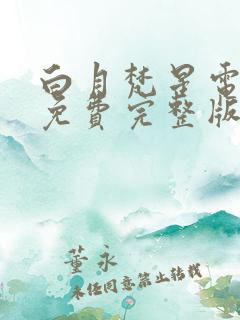 白月梵星電
免費完整版
董永
未经同意禁止转载